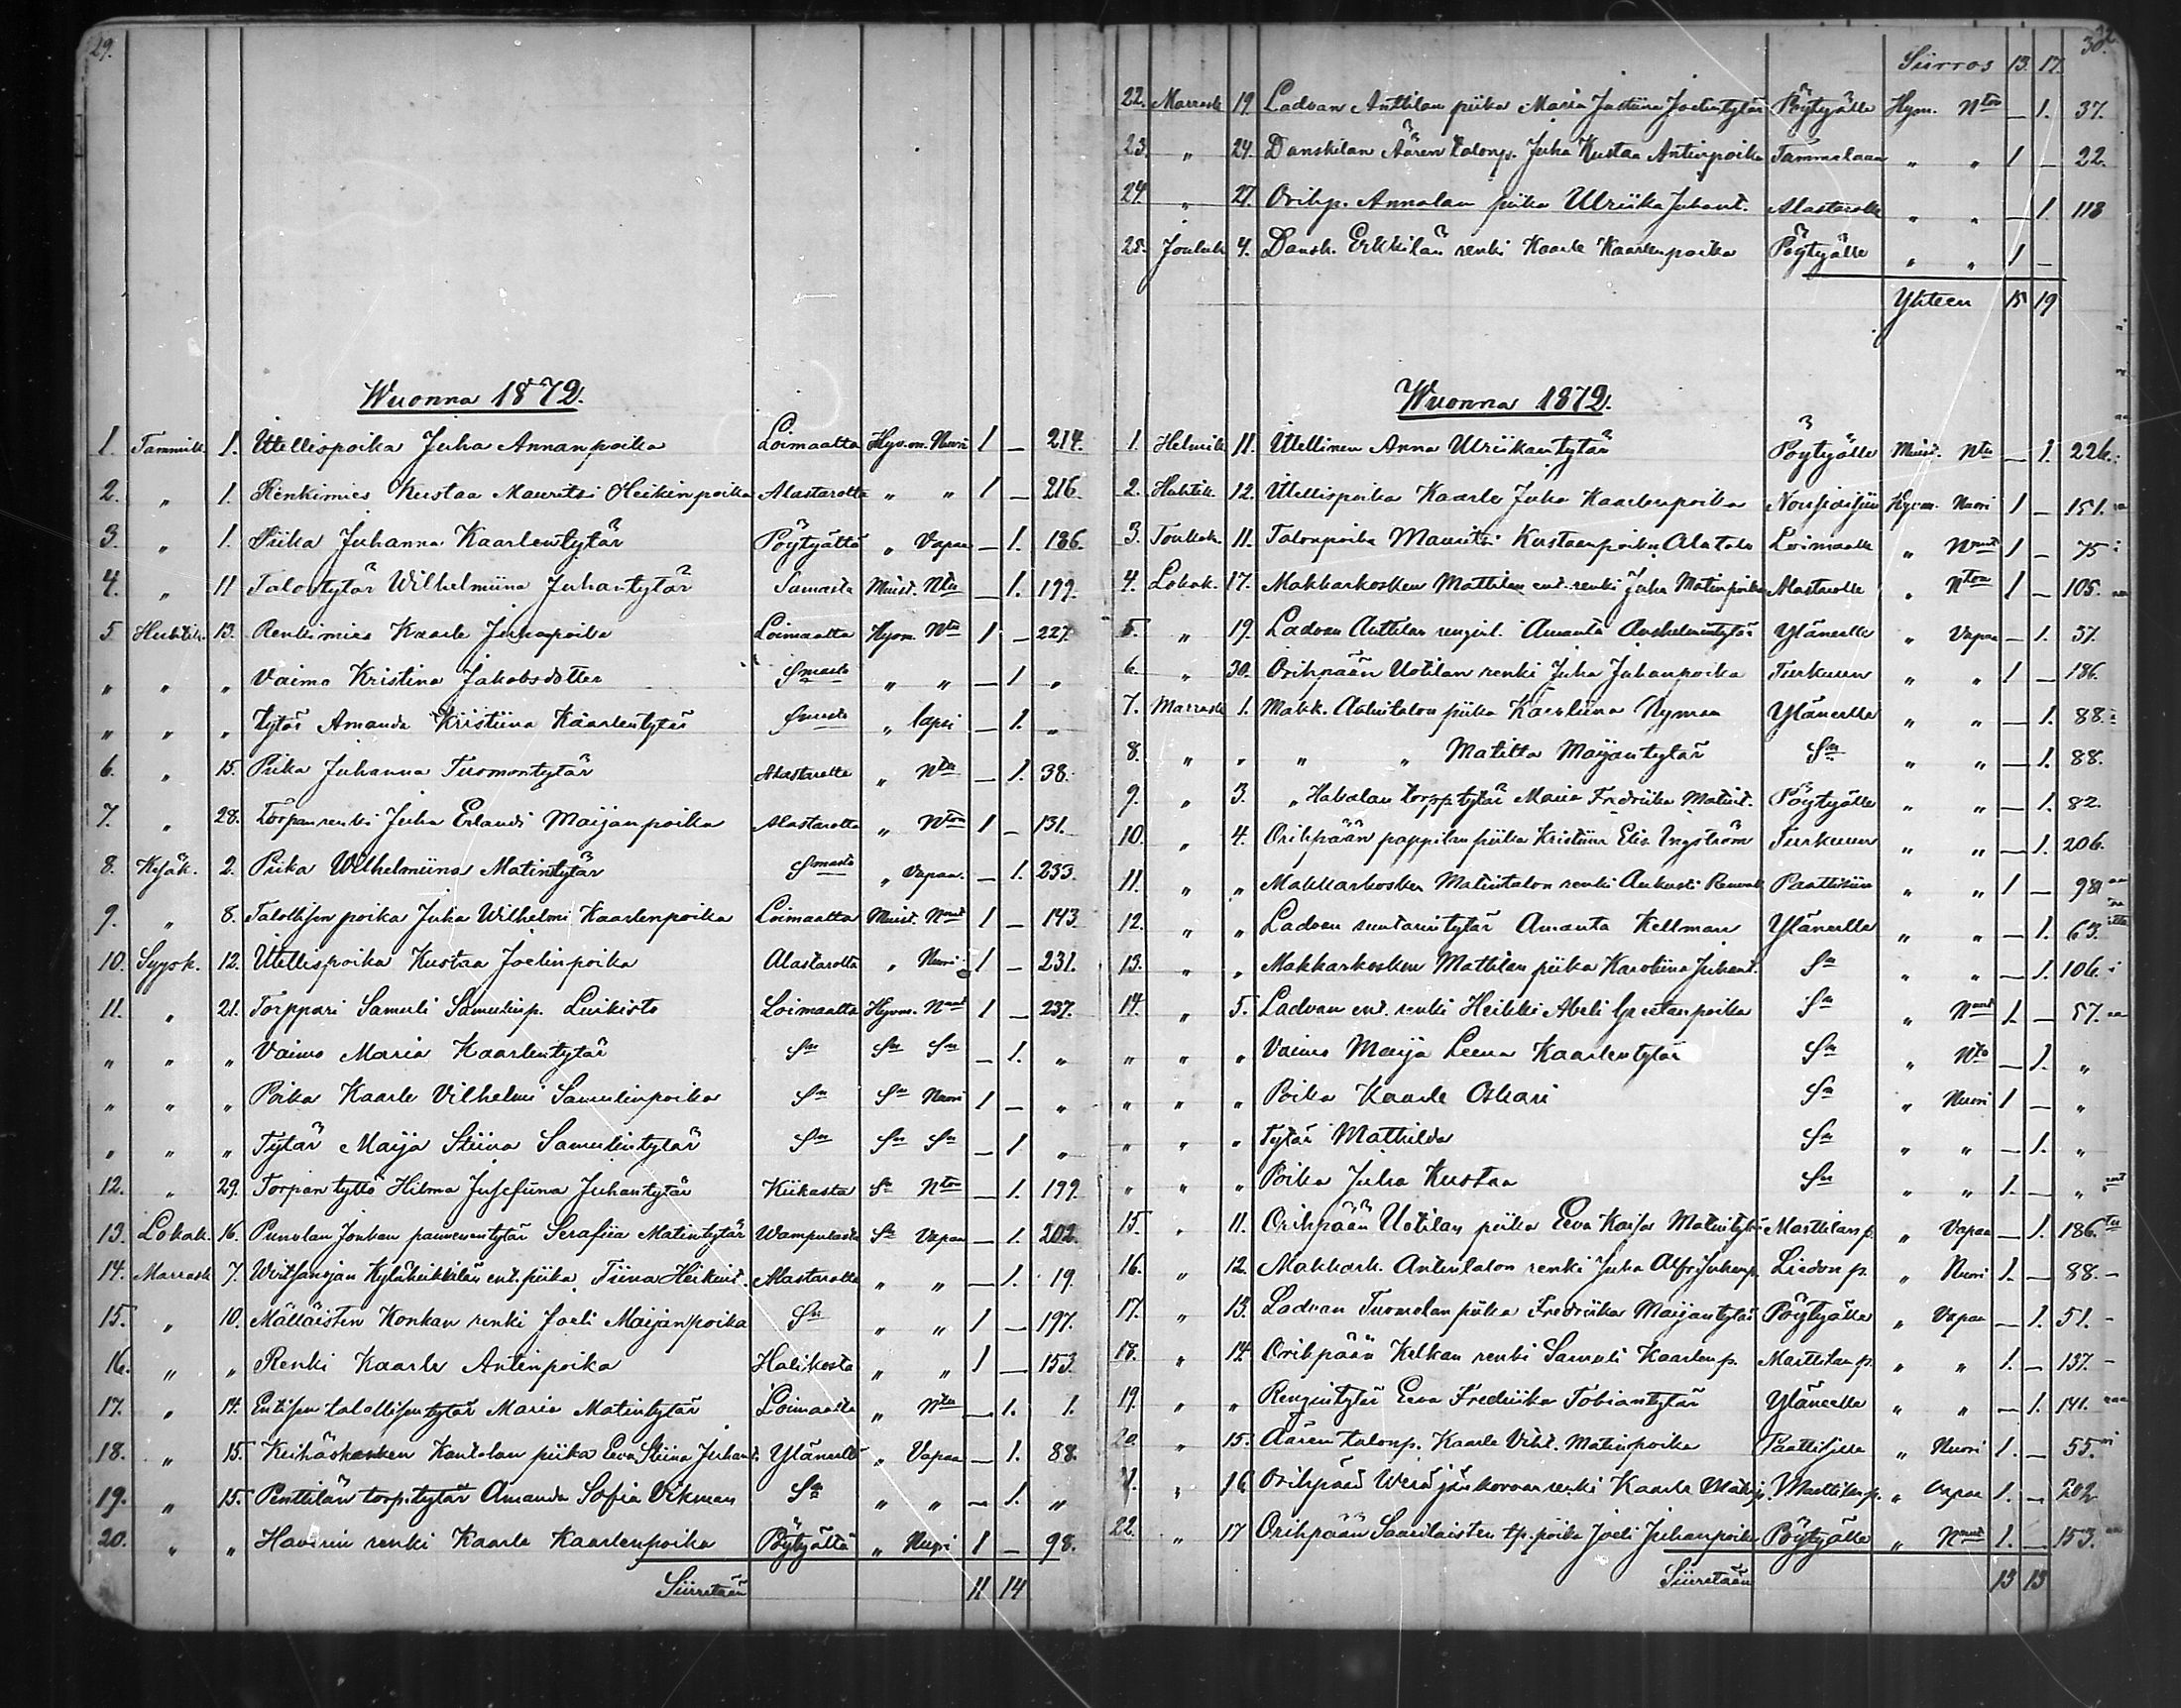 29.
Wuonna 1872.
1. Tammik. 1. Itellispoika Juha Annanpoika Loimaalta Hyv.m. Nuori 1 — 214.
2. " 1. Renkimies Kustaa Mauritsi Heikinpoika Alastarolta " " 1 — 216.
3. " 1. Piika Juhanna Kaarlentytär Pöytyältä " Vapaa — 1. 186.
4. " 11 Talontytär Wilhelmiina Juhantytär Samasta Muist. Ntu — 1. 199.
5 Huhtik. 13. Renkimies Kaarle Juhanpoika Loimaalta Hyvm. Ntu 1 — 227.
" " " Vaimo Kristina Jakobsdotter Smasta " " — 1 "
" " " tytär Amanda Kristiina Kaarlentytär Smasta " lapsi — 1. "
6. " 15. Piika Juhanna Tuomontytär Alastarolta " Ntu — 1. 38.
7. " 28. Torpan renki Juha Erlandi Maijanpoika Alastarolta " Nton 1 — 131.
8. Kesäk. 2. Piika Wilhelmiina Matintytär Smasta " Vapaa. — 1. 233.
9. " 8. Talollisen poika Juha Wilhelmi Kaarlenpoika Loimaalta Muist. Nnut 1 — 143
10. Syysk. 12. Itellispoika Kustaa Joelinpoika Alastarolta " Nuori 1 — 231.
11. " 21. Torppari Samuli Samulinp. Luikisto Loimaalta Hyvm. Nnut 1 — 237.
" " " Vaimo Maria Kaarlentytär Sm Sm Sm — 1. "
" " " Poika Kaarle Vilhelmi Samulinpoika Sm Sm Nuori 1 — "
" " " Tytär Maija Stiina Samulintytär Sm Sm Sm — 1. "
12. " 29. Torpan tyttö Hilma Josefiina Juhantytär Kiikasta Sm Nton — 1. 199.
13. Lokak. 16. Punolan Joukan Serafiia Matintytär Wampulasta Sm Vapaa — 1. 202.
14. Marrask 7. Kyläheikkilän ent. piika Tiina Heikint. Alastarolta " " — 1. 19.
15. " 10. Mälläisten Konkan renki Joeli Maijanpoika Sm " " 1 — 197.
16. " " Renki Kaarle Antinpoika Halikosta " " 1 — 153.
17. " 14. talollisen tytär Maria Matintytär Loimaalta " Ntu — 1. 1.
18. " 15. Keihäskosken Kantolan piika Eva Stiina Juhant. Yläneeltä " Vapaa — 1. 88.
19. " 15. Penttilän torp.tytär Amanda Sofia Vikman Sm " " — 1. "
20. " " Havirin renki Kaarle Kaarlenpoika Pöytyältä " Nuori 1 — 98.
Siirretään 11 14
30.
Siirros 13. 17.
22. Marrask 19. Ladvan Anttilan piika Maria Justiina Joelintytär Pöytyälle Hyvm. Nton — 1. 37.
23. " 24. Danskilan Äären talonp. Juha Kustaa Antinpoika Tammelaan " " 1 — 22.
24. " 27. Orihp. Annalan piika Ulriika Juhant. Alastarolle " " — 1. 118
25. Jouluk 4. Dansk. Erkkilän renki Kaarle Kaarlenpoika Pöytyälle " " 1 —
Yhteen 15 19
Wuonna 1872.
1. Helmik 11. Itellinen Anna Ulriikantytär Pöytyälle Muist. Ntu — 1. 226.
2. Huhtik. 12. Itellispoika Kaarle Juho Kaarlenpoika Nousiaisiin Hyvm. Nuori 1 — 151.
3. Toukok. 11. Talonpoika Mauritsi Kustaanpoika Alatalo Loimaalle " Nnut 1 — 75
4. Lokak. 17. Makkarkosken Mattilan ent. renki Juha Matinpoika Alastarolle " Nton 1 — 105.
5. " 19. Ladvan Anttilan rengint. Amanta Anshelmintytär Yläneelle " Vapaa — 1. 37.
6. " 30. Orihpään Uotilan renki Juha Juhanpoika Turkuun " " 1 — 186.
7. Marrask 1. Makk. Antintalon piika Karoliina Nyman Yläneelle " " — 1. 88.
8. " " " " Matilta Maijantytär Sm " " — 1. 88.
9. " 3. " Hakalan torpp.tytär Maria Fredriika Matint. Pöytyälle " " — 1. 82.
10. " 4. Orihpään pappilan piika Kristiina Elis. Ingström Turkuun " " — 1. 206.
11. " " Makkarkosken Matintalon renki Aukusti Paattisiin " " 1 — 98
12. " " Ladvan suntarintytär Amanta Kellman Yläneelle " " — 1. 63.
13. " " Makkarkosken Mattilan piika Karoliina Juhant. Sm " " — 1. 106.
14. " 5. Ladvan ent. renki Heikki Abeli Kustanpoika Sm " Nnut 1. — 57.
" " " Vaimo Maija Leena Kaarlentytär Sm " Nto — 1. "
" " " Poika Kaarle Oskari Sm " Nuori 1 — "
" " " Tytär Mathilda Sm " " — 1. "
" " " Poika Juha Kustaa Sm " " 1. — "
15. " 11. Orihpään Uotilan piika Eeva Kaisa Matintytär Marttilan p. " Vapaa — 1. 186.
16. " 12. Makkark. Antintalon renki Juha Alfr. Juhanp. Liedon p. " Nuori 1. — 88.
17. " 13. Ladvan Tuomolan piika Fredriika Maijantytär Pöytyälle " Vapaa — 1. 51.
18. " 14. Orihpään Kelkan renki Samuli Kaarlenp. Marttilan p. " " 1. — 137.
19. " " Rengintytär Eeva Fredriika Tobiantytär Yläneelle " " — 1. 141.
20. " 15. Äären talonp. Kaarle Vihl. Matinpoika Paattisille " Nuori 1. — 55.
21. " 16. Orihpään renki Kaarle Matinp. Marttilan p. " Vapaa 1. — 202
22. " 17 Orihpään Saarilaisten tp. poika Joeli Juhanpoika Pöytyälle " Nnut 1. — 153.
Siirretään 13 13